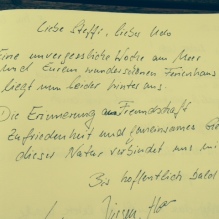 Liebe Steffi, lieber Udo
Eine unvergessliche Woche am Meer
und Eurem wunderschönen Ferienhaus
liegt nun leider hinter uns.
Die Erinnerung an Freundschaft
Zufriedenheit und gemeinsamer
dieser Natur verbindet uns
Bis hoffentlich bald
Jürgen,